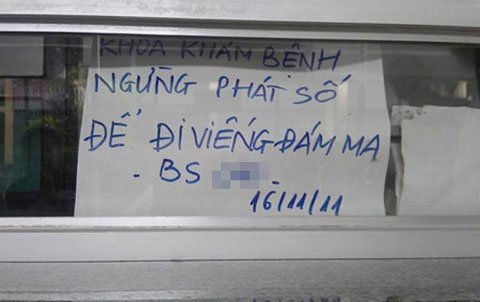 KHOA KHÁM BỆNH
NGỪNG PHÁT SỐ
ĐỂ ĐI VIẾNG ĐÁM MA
- BS
16/11/11